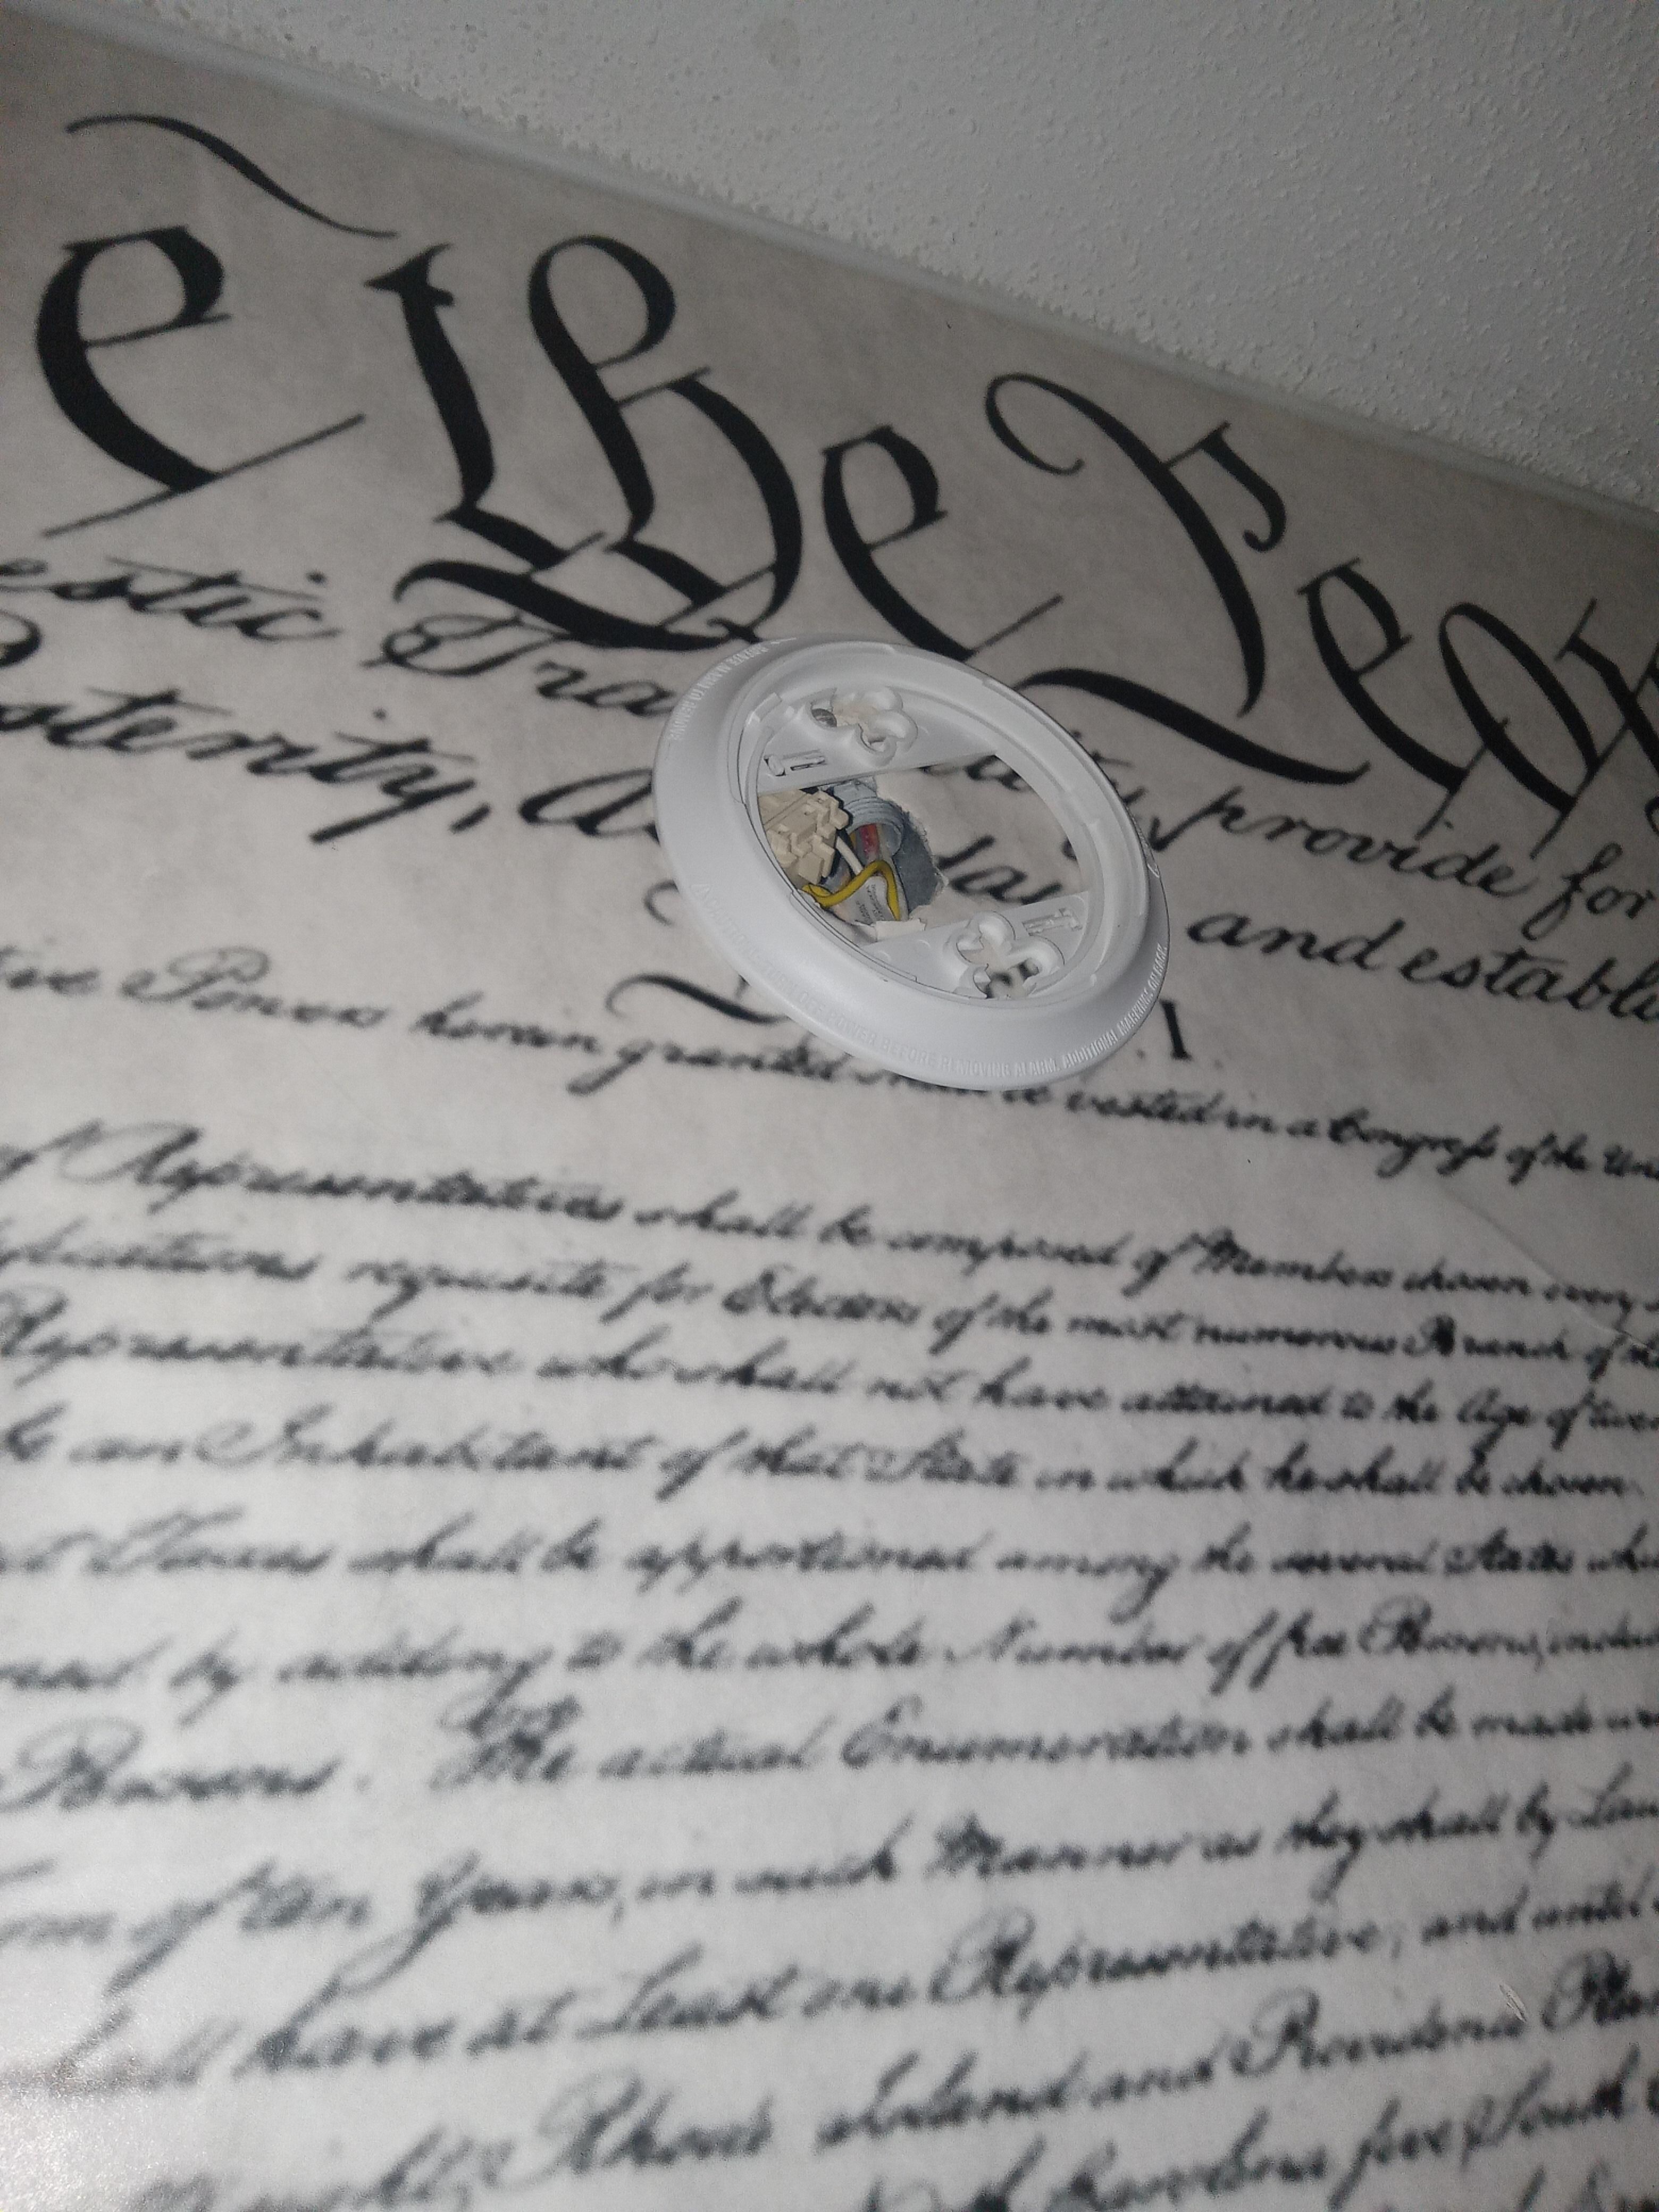 e the Peop
estic Tra ity, provide for
osterity, do and establi
.I.
ive Powers herein granted shall be vested in a Congress of the Uni
of Representatives shall be composed of Members chosen every
requisite for Electors of the most numerous Branch of the
Representative who shall not have attained to the Age of twen
be an Inhabitant of that State in which he shall be chosen.
Taxes shall be apportioned among the several States whi
by adding to the whole Number of free Persons, inclu
Persons. The actual Enumeration shall be made
of ten Years, in such Manner as they shall by Law
have at Least one Representative; and until
Rhode Island and Providence Plan
five, South
POWER BEFORE REMOVING ALARM. ADDITIONAL MARKINGS ON BACK.